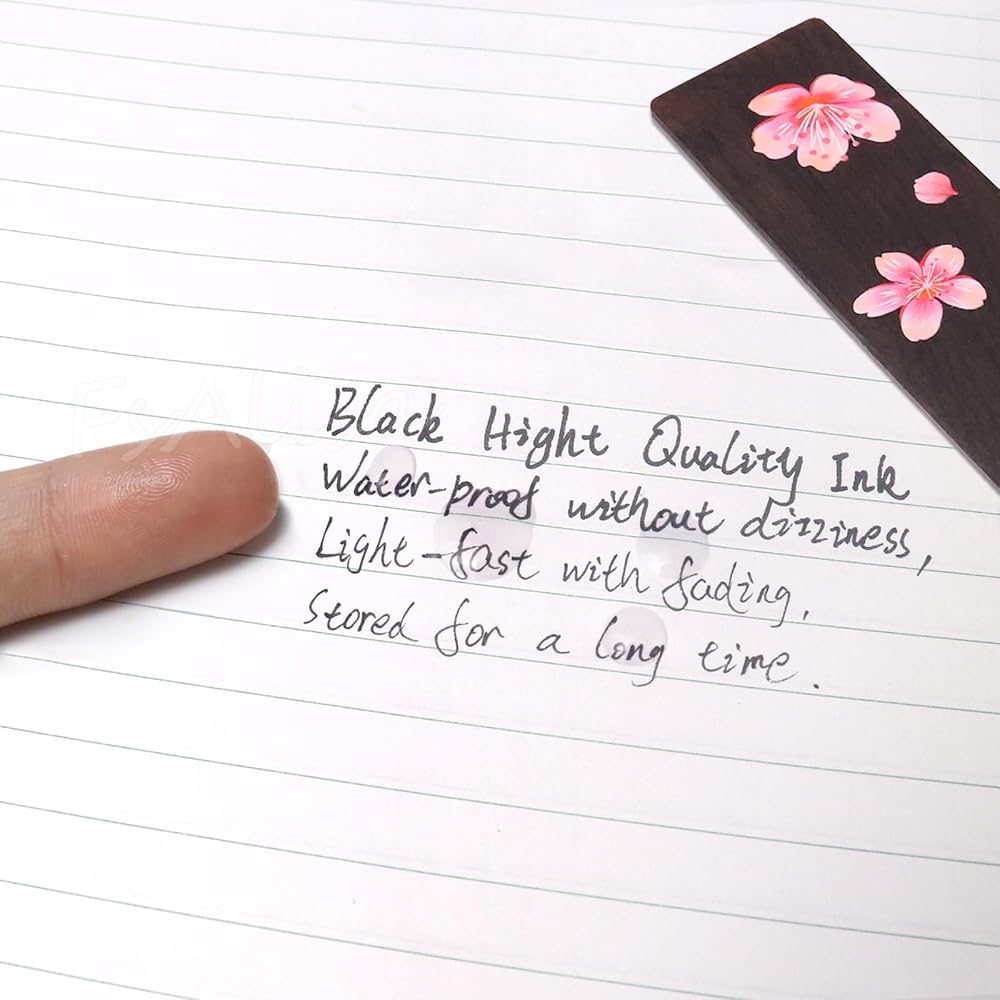 Black Hight Quality Ink
Water-proof without dizziness,
Light-fast with fading,
Stored for a long time.